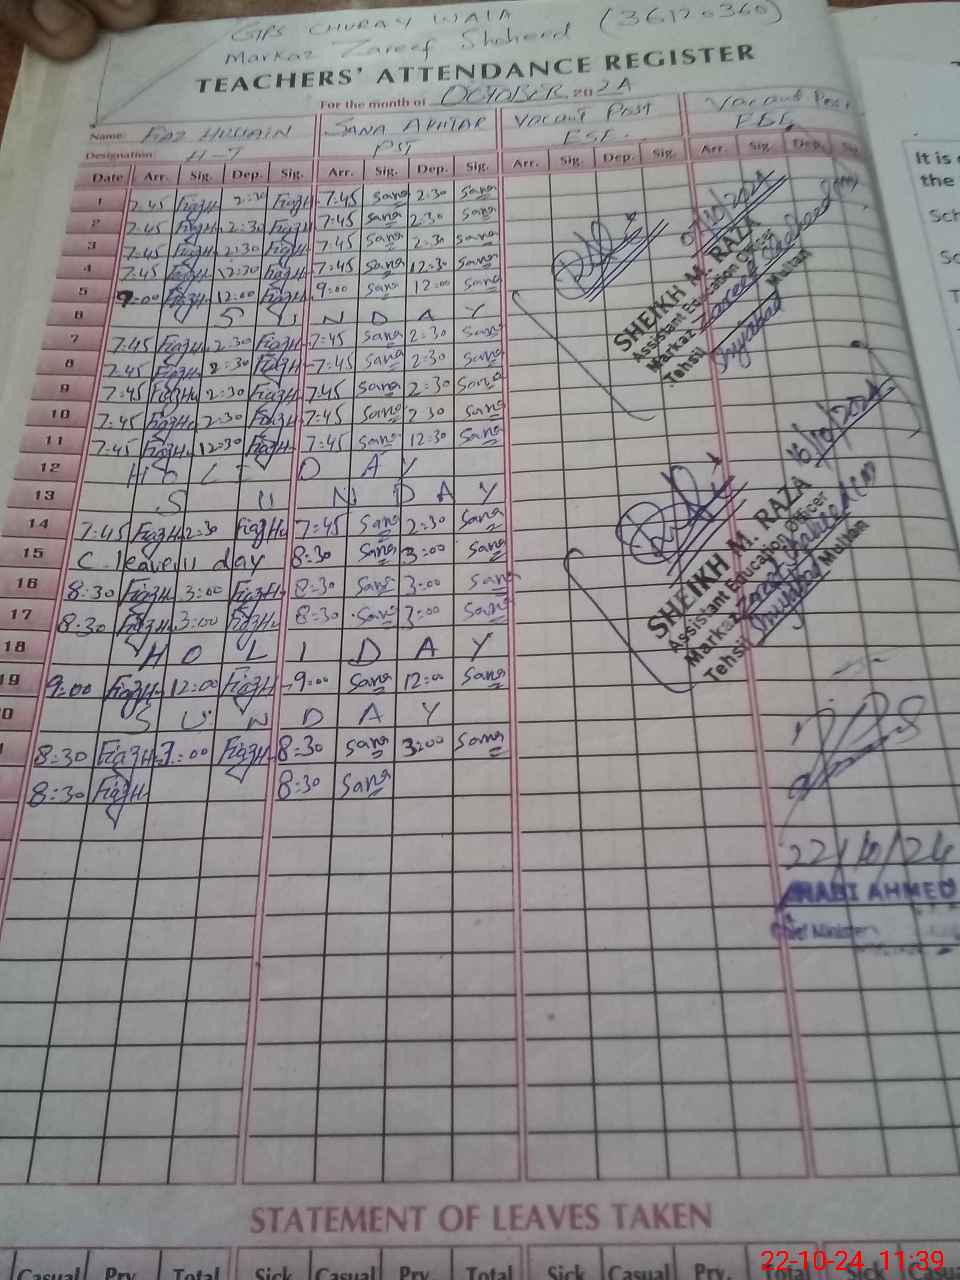 GPS CHURAY WALA
Markaz Zareef Shaheed (36120360)
TEACHERS' ATTENDANCE REGISTER
For the month of OCTOBER 2024
Name: FIAZ HUSSAIN SANA AKHTAR Vacant Post Vacant Post
Designation H-T PST ESE. ESE
Date Arr. Sig. Dep. Sig. Arr. Sig. Dep. Sig. Arr. Sig. Dep. Sig. Arr. Sig. Dep. Sig.
1 7:45 FiazH 2:30 FiazH 7:45 Sana 2:30 Sana
2 7:45 FiazH 2:30 FiazH 7:45 Sana 2:30 Sana
3 7:45 FiazH 2:30 FiazH 7:45 Sana 2:30 Sana
4 7:45 FiazH 12:30 FiazH 7:45 Sana 12:30 Sana
5 9:00 FiazH 12:00 FiazH 9:00 Sana 12:00 Sana
6 S U N D A Y
7 7:45 FiazH 2:30 FiazH 7:45 Sana 2:30 Sana
8 7:45 FiazH 2:30 FiazH 7:45 Sana 2:30 Sana
9 7:45 FiazH 2:30 FiazH 7:45 Sana 2:30 Sana
10 7:45 FiazH 2:30 FiazH 7:45 Sana 2:30 Sana
11 7:45 FiazH 12:30 FiazH 7:45 Sana 12:30 Sana
12 H O L I D A Y
13 S U N D A Y
14 7:45 FiazH 2:30 FiazH 7:45 Sana 2:30 Sana
15 C. leave 11 day 8:30 Sana 3:00 Sana
16 8:30 FiazH 3:00 FiazH 8:30 Sana 3:00 Sana
17 8:30 FiazH 3:00 FiazH 8:30 Sana 3:00 Sana
18 H O L I D A Y
19 9:00 FiazH 12:00 FiazH 9:00 Sana 12:00 Sana
0 S U N D A Y
8:30 FiazH 3:00 FiazH 8:30 Sana 3:00 Sana
8:30 FiazH 8:30 Sana
SHEIKH M. RAZA
Assistant Education Officer
Markaz Zareef Shaheed (M)
Tehsil Shujabad Multan
16/10/2024
SHEIKH M. RAZA
Assistant Education Officer
Markaz Zareef Shaheed (M)
Tehsil Shujabad Multan
22/10/24
RABI AHMED
Chief Minister
STATEMENT OF LEAVES TAKEN
Casual Prv. Total Sick Casual Prv. Total Sick Casual Prv. Total Sick
It is
the
Sch
22-10-24 11:39